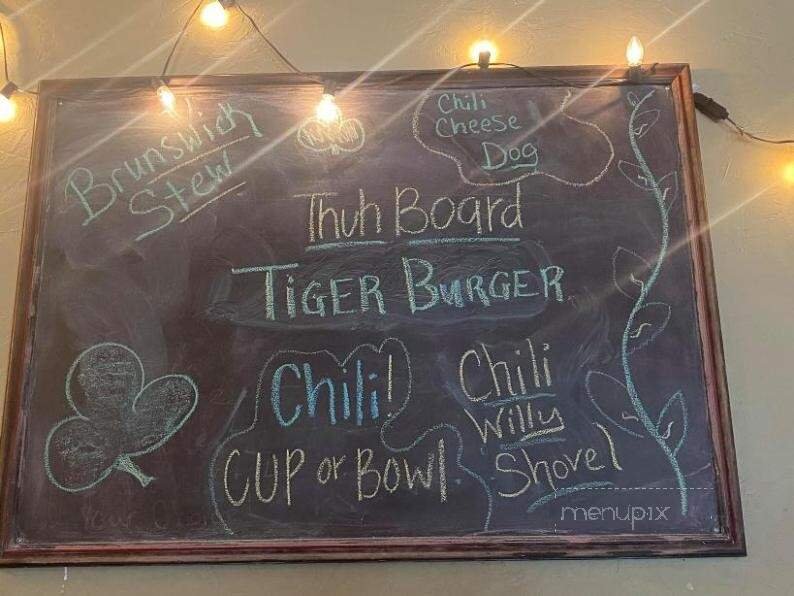 Brunswick
Stew
Chili
Cheese
Dog
Thuh Board
TIGER BURGER
Chili!
CUP or BOWl
Chili
Willy
Shovel
menupix